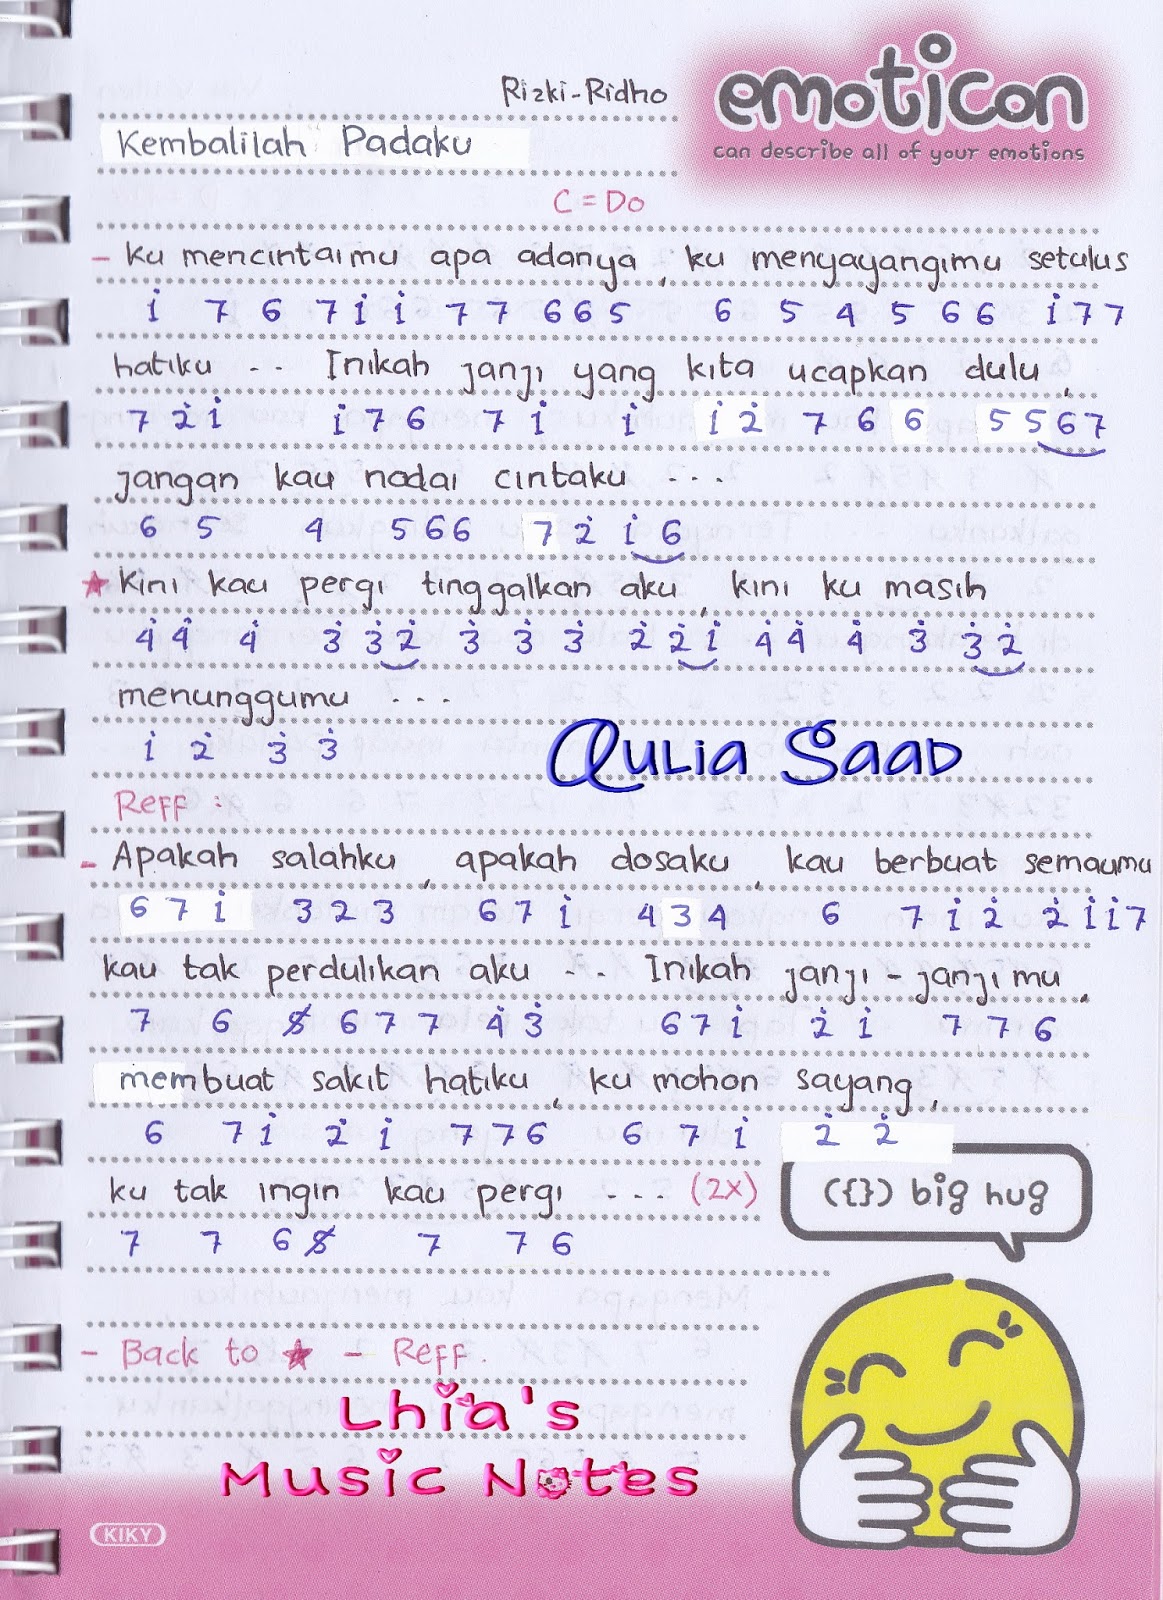 Rizki-Ridho
emoticon
can describe all of your emotions
Kembalilah Padaku
C = Do
- ku mencintaimu apa adanya, ku menyayangimu setulus
i̇ 7 6 7 i̇ i̇ 7 7 6 6 5 6 5 4 5 6 6 i̇ 7 7
hatiku .. Inikah janji yang kita ucapkan dulu,
7 2̇ i̇ i̇ 7 6 7 i̇ i̇ i̇ 2̇ 7 6 6 5 5 6 7
jangan kau nodai cintaku ...
6 5 4 5 6 6 7 2̇ i̇ 6
★ Kini kau pergi tinggalkan aku, kini ku masih
4̇ 4̇ 4̇ 3̇ 3̇ 2̇ 3̇ 3̇ 3̇ 2̇ 2̇ i̇ 4̇ 4̇ 4̇ 3̇ 3̇ 2̇
menunggumu ...
i̇ 2̇ 3̇ 3̇
Aulia Saad
Reff :
- Apakah salahku, apakah dosaku, kau berbuat semaumu
6 7 i̇ 3 2 3 6 7 i̇ 4 3 4 6 7 i̇ 2̇ 2̇ i̇ i̇ 7
kau tak perdulikan aku ... Inikah janji - janji mu,
7 6 5̸ 6 7 7 4̇ 3̇ 6 7 i̇ 2̇ i̇ 7 7 6
membuat sakit hatiku, ku mohon sayang,
6 7 i̇ 2̇ i̇ 7 7 6 6 7 i̇ 2̇ 2̇
ku tak ingin kau pergi ... (2x)
7 7 6 5̸ 7 7 6
({}) big hug
- Back to ★ - Reff.
Lhia's
Music Notes
KIKY